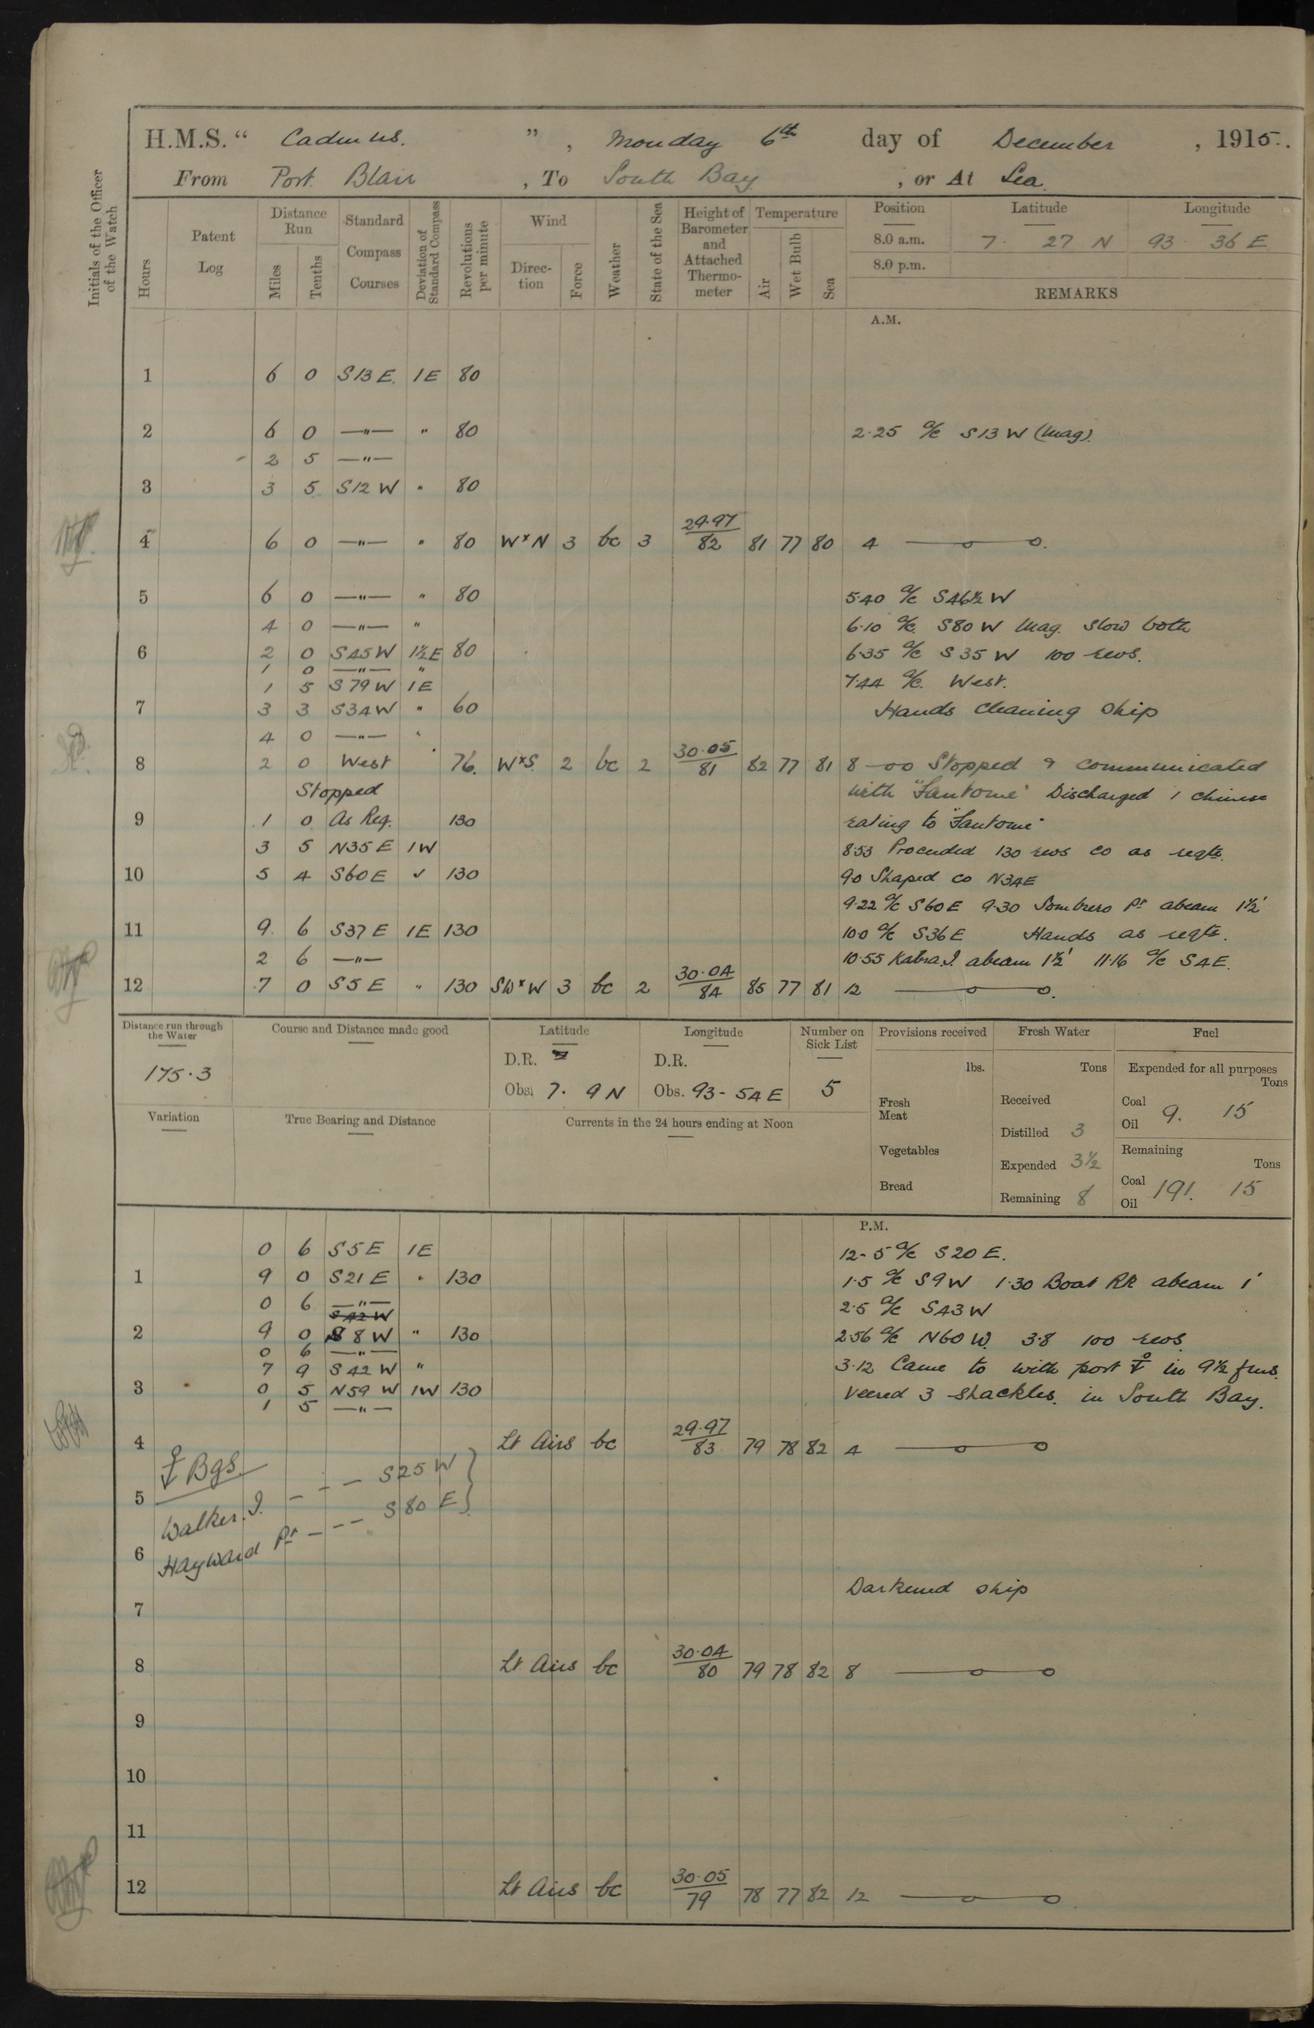 H.M.S. " Cadmus. ", Monday 6th day of December, 1915.
From Port Blair, To South Bay, or At Sea.
Initials of the Officer of the Watch
Hours
Patent Log
Distance Run
Miles
Tenths
Standard Compass Courses
Deviation of Standard Compass
Revolutions per minute
Wind
Direction
Force
Weather
State of the Sea
Height of Barometer and Attached Thermometer
Temperature
Air
Wet Bulb
Sea
Position Latitude Longitude
8.0 a.m. 7. 27 N 93 36 E
8.0 p.m.
REMARKS
A.M.
1 6 0 S13E. 1E 80
2 6 0 —"— " 80 2.25 a/c S13W (Mag).
2 5 —"—
3 3 5 S12W " 80
4 6 0 —"— " 80 WxN 3 bc 3 29.97/82 81 77 80 4 ——o——o.
5 6 0 —"— " 80 5.40 a/c S46½W
4 0 —"— " 6.10 a/c S80W Mag. Slow both
6 2 0 S45W 1½E 80 6.35 a/c S35W 100 revs.
1 0 —"— "
1 5 S79W 1E 7.44 a/c. West.
7 3 3 S34W " 60 Hands cleaning ship
4 0 —"— "
8 2 0 West 76. WxS 2 bc 2 30.05/81 82 77 81 8—00 Stopped & communicated
Stopped with "Fantome" Discharged 1 Chinese
9 1 0 As Req. 130 rating to "Fantome"
3 5 N35E 1W 8.53 Proceeded 130 revs co as reqte.
10 5 4 S60E ✓ 130 9.0 Shaped co N34E
9.22 a/c S60E 9.30 Sombrero Pt abeam 1½'
11 9. 6 S37E 1E 130 10.0 a/c S36E Hands as reqte.
2 6 —"— 10.55 Kabra I. abeam 1½' 11.16 a/c S4E.
12 7 0 S5E " 130 SWxW 3 bc 2 30.04/84 85 77 81 12 ——o——o.
Distance run through the Water
175.3
Course and Distance made good
Latitude
D.R.
Obs. 7. 9 N
Longitude
D.R.
Obs. 93 - 54 E
Number on Sick List
5
Provisions received
lbs.
Fresh Meat
Vegetables
Bread
Fresh Water
Tons
Received
Distilled 3
Expended 3½
Remaining 8
Fuel
Expended for all purposes
Tons
Coal
Oil 9. 15
Remaining
Tons
Coal
Oil 191. 15
Variation
True Bearing and Distance
Currents in the 24 hours ending at Noon
P.M.
0 6 S5E 1E 12-5 a/c S20E.
1 9 0 S21E " 130 1.5 a/c S9W 1.30 Boat Rk abeam 1'
0 6 —"— 2.5 a/c S43W
S42W
2 9 0 S8W " 130 2.56 a/c N60W. 3.8 100 revs.
0 6 —"—
7 9 S42W " 3.12 Came to with port ⚓ in 9½ fms.
3 0 5 N59W 1W 130 Veered 3 shackles. in South Bay.
1 5 —"—
4 Lt Airs bc 29.97/83 79 78 82 4 ——o——o
⚓ Bgs.
5 Walker. I. - - - S25W }
6 Hayward Pt - - - S80E }
Darkened ship
7
8 Lt Airs bc 30.04/80 79 78 82 8 ——o——o
9
10
11
12 Lt Airs bc 30.05/79 78 77 82 12 ——o——o